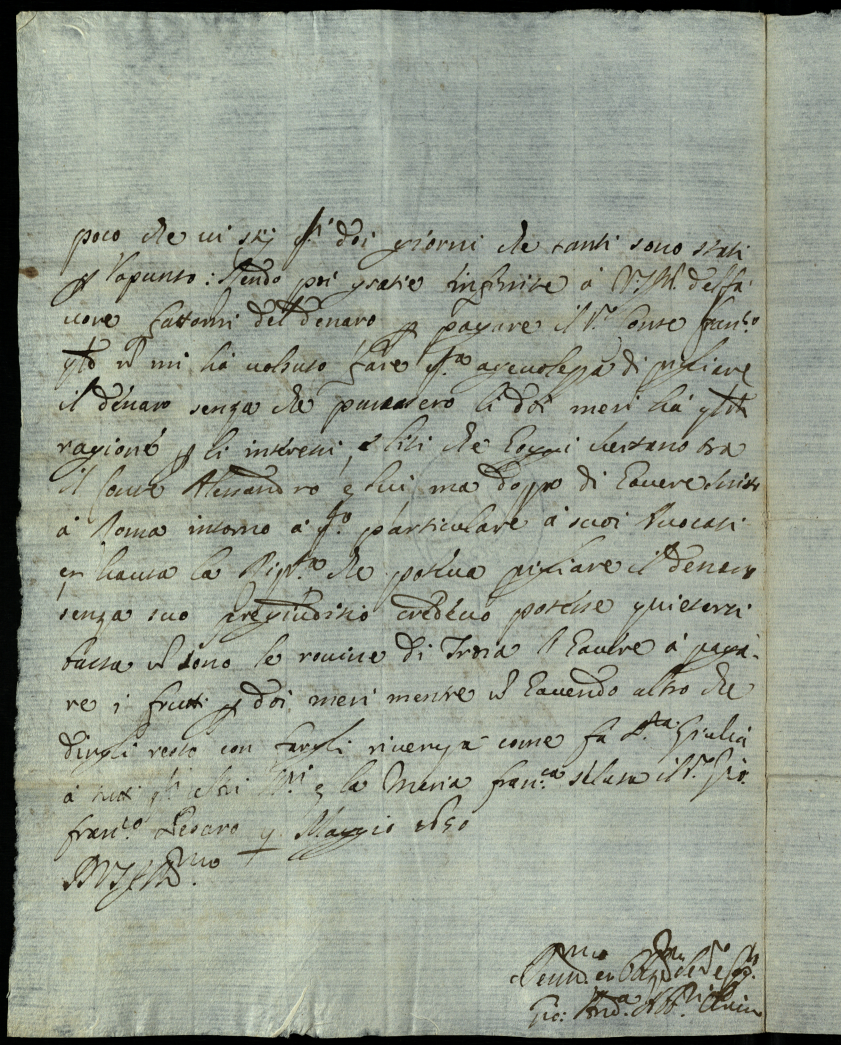 poco che vi stij q.ti doi giorni che tanti sono stati
p l'apunto: Rendo poi gratie infinite à V.S. Ill. del fa-
vore fattomi del denaro p pagare il S.r Conte Fran.co
mi hà voluto fare q.ta agevolezza di pigliare
il denaro senza che passassero li doi mesi hà
ragione p li interessi, e liti che hoggi vertano tra
il Conte Alessandro e lui, ma doppo di havere scritto
à Roma intorno à q.to particulare à suoi Avocati
et hauta la Risp.ta che poteva pigliare il denaro
senza suo pregiuditio credevo potesse quietarsi
basta sono le rovine di Troia l'havere à paga-
re i frutti p doi mesi mentre havendo altro che
dirgli resto con fargli riverenza come fà Giulia
à tutti gli altri SS.ri e la Maria Fran.ca saluta il S.r Gio.
Fran.co Pesaro 9 Maggio 1650
D V.S. Ill.ma
Gio: And.a